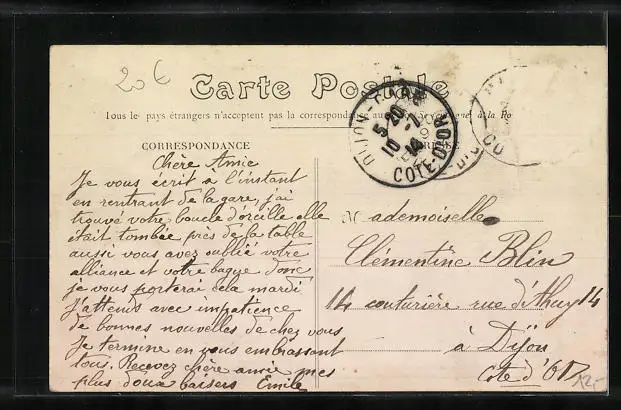 20 €
Carte Postale
Tous les pays étrangers n'acceptent pas la correspondance au à la Po
CORRESPONDANCE
DIJON-GARE
5-20
10 -1
14
COTE-D'OR
Chère Amie
Je vous écrit à l'instant
en rentrant de la gare, j'ai
trouvé votre boucle d'oreille elle
était tombée près de la table
aussi vous avez oublié votre
alliance et votre bague donc
je vous porterai cela mardi
J'attends avec impatience
de bonnes nouvelles de chez vous
Je termine en vous embrassant
tous. Recevez chère amie mes
plus doux baisers Emile
Mademoiselle
Clémentine Blin
14 couturière rue d'Ahuy 14
à Dijon
Cote d'Or
12-